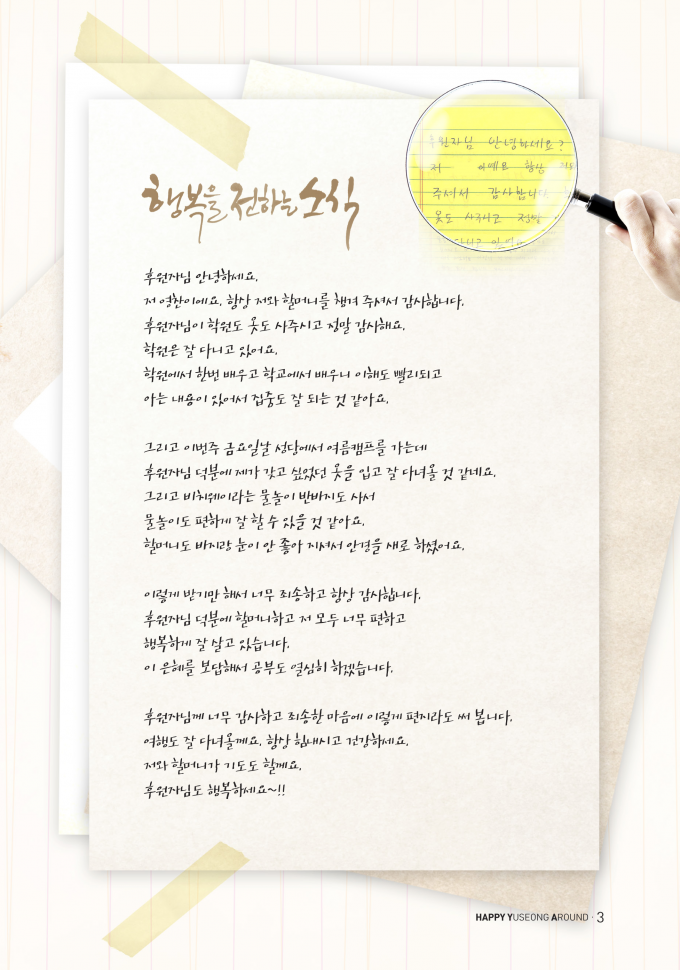 행복을 전하는 소식
후원자님 안녕하세요?
저
아예요 항상
주셔서 감사합니다
옷도 사주시고 정말
다니고 있어요
후원자님 안녕하세요.
저 영찬이에요. 항상 저와 할머니를 챙겨 주셔서 감사합니다.
후원자님이 학원도 옷도 사주시고 정말 감사해요.
학원은 잘 다니고 있어요.
학원에서 한번 배우고 학교에서 배우니 이해도 빨리되고
아는 내용이 있어서 집중도 잘 되는 것 같아요.
그리고 이번주 금요일날 성당에서 여름캠프를 가는데
후원자님 덕분에 제가 갖고 싶었던 옷을 입고 잘 다녀올 것 같네요.
그리고 비치웨이라는 물놀이 반바지도 사서
물놀이도 편하게 잘 할 수 있을 것 같아요.
할머니도 바지랑 눈이 안 좋아 지셔서 안경을 새로 하셨어요.
이렇게 받기만 해서 너무 죄송하고 항상 감사합니다.
후원자님 덕분에 할머니하고 저 모두 너무 편하고
행복하게 잘 살고 있습니다.
이 은혜를 보답해서 공부도 열심히 하겠습니다.
후원자님께 너무 감사하고 죄송한 마음에 이렇게 편지라도 써 봅니다.
여행도 잘 다녀올께요. 항상 힘내시고 건강하세요.
저와 할머니가 기도도 할께요.
후원자님도 행복하세요~!!
HAPPY YUSEONG AROUND · 3